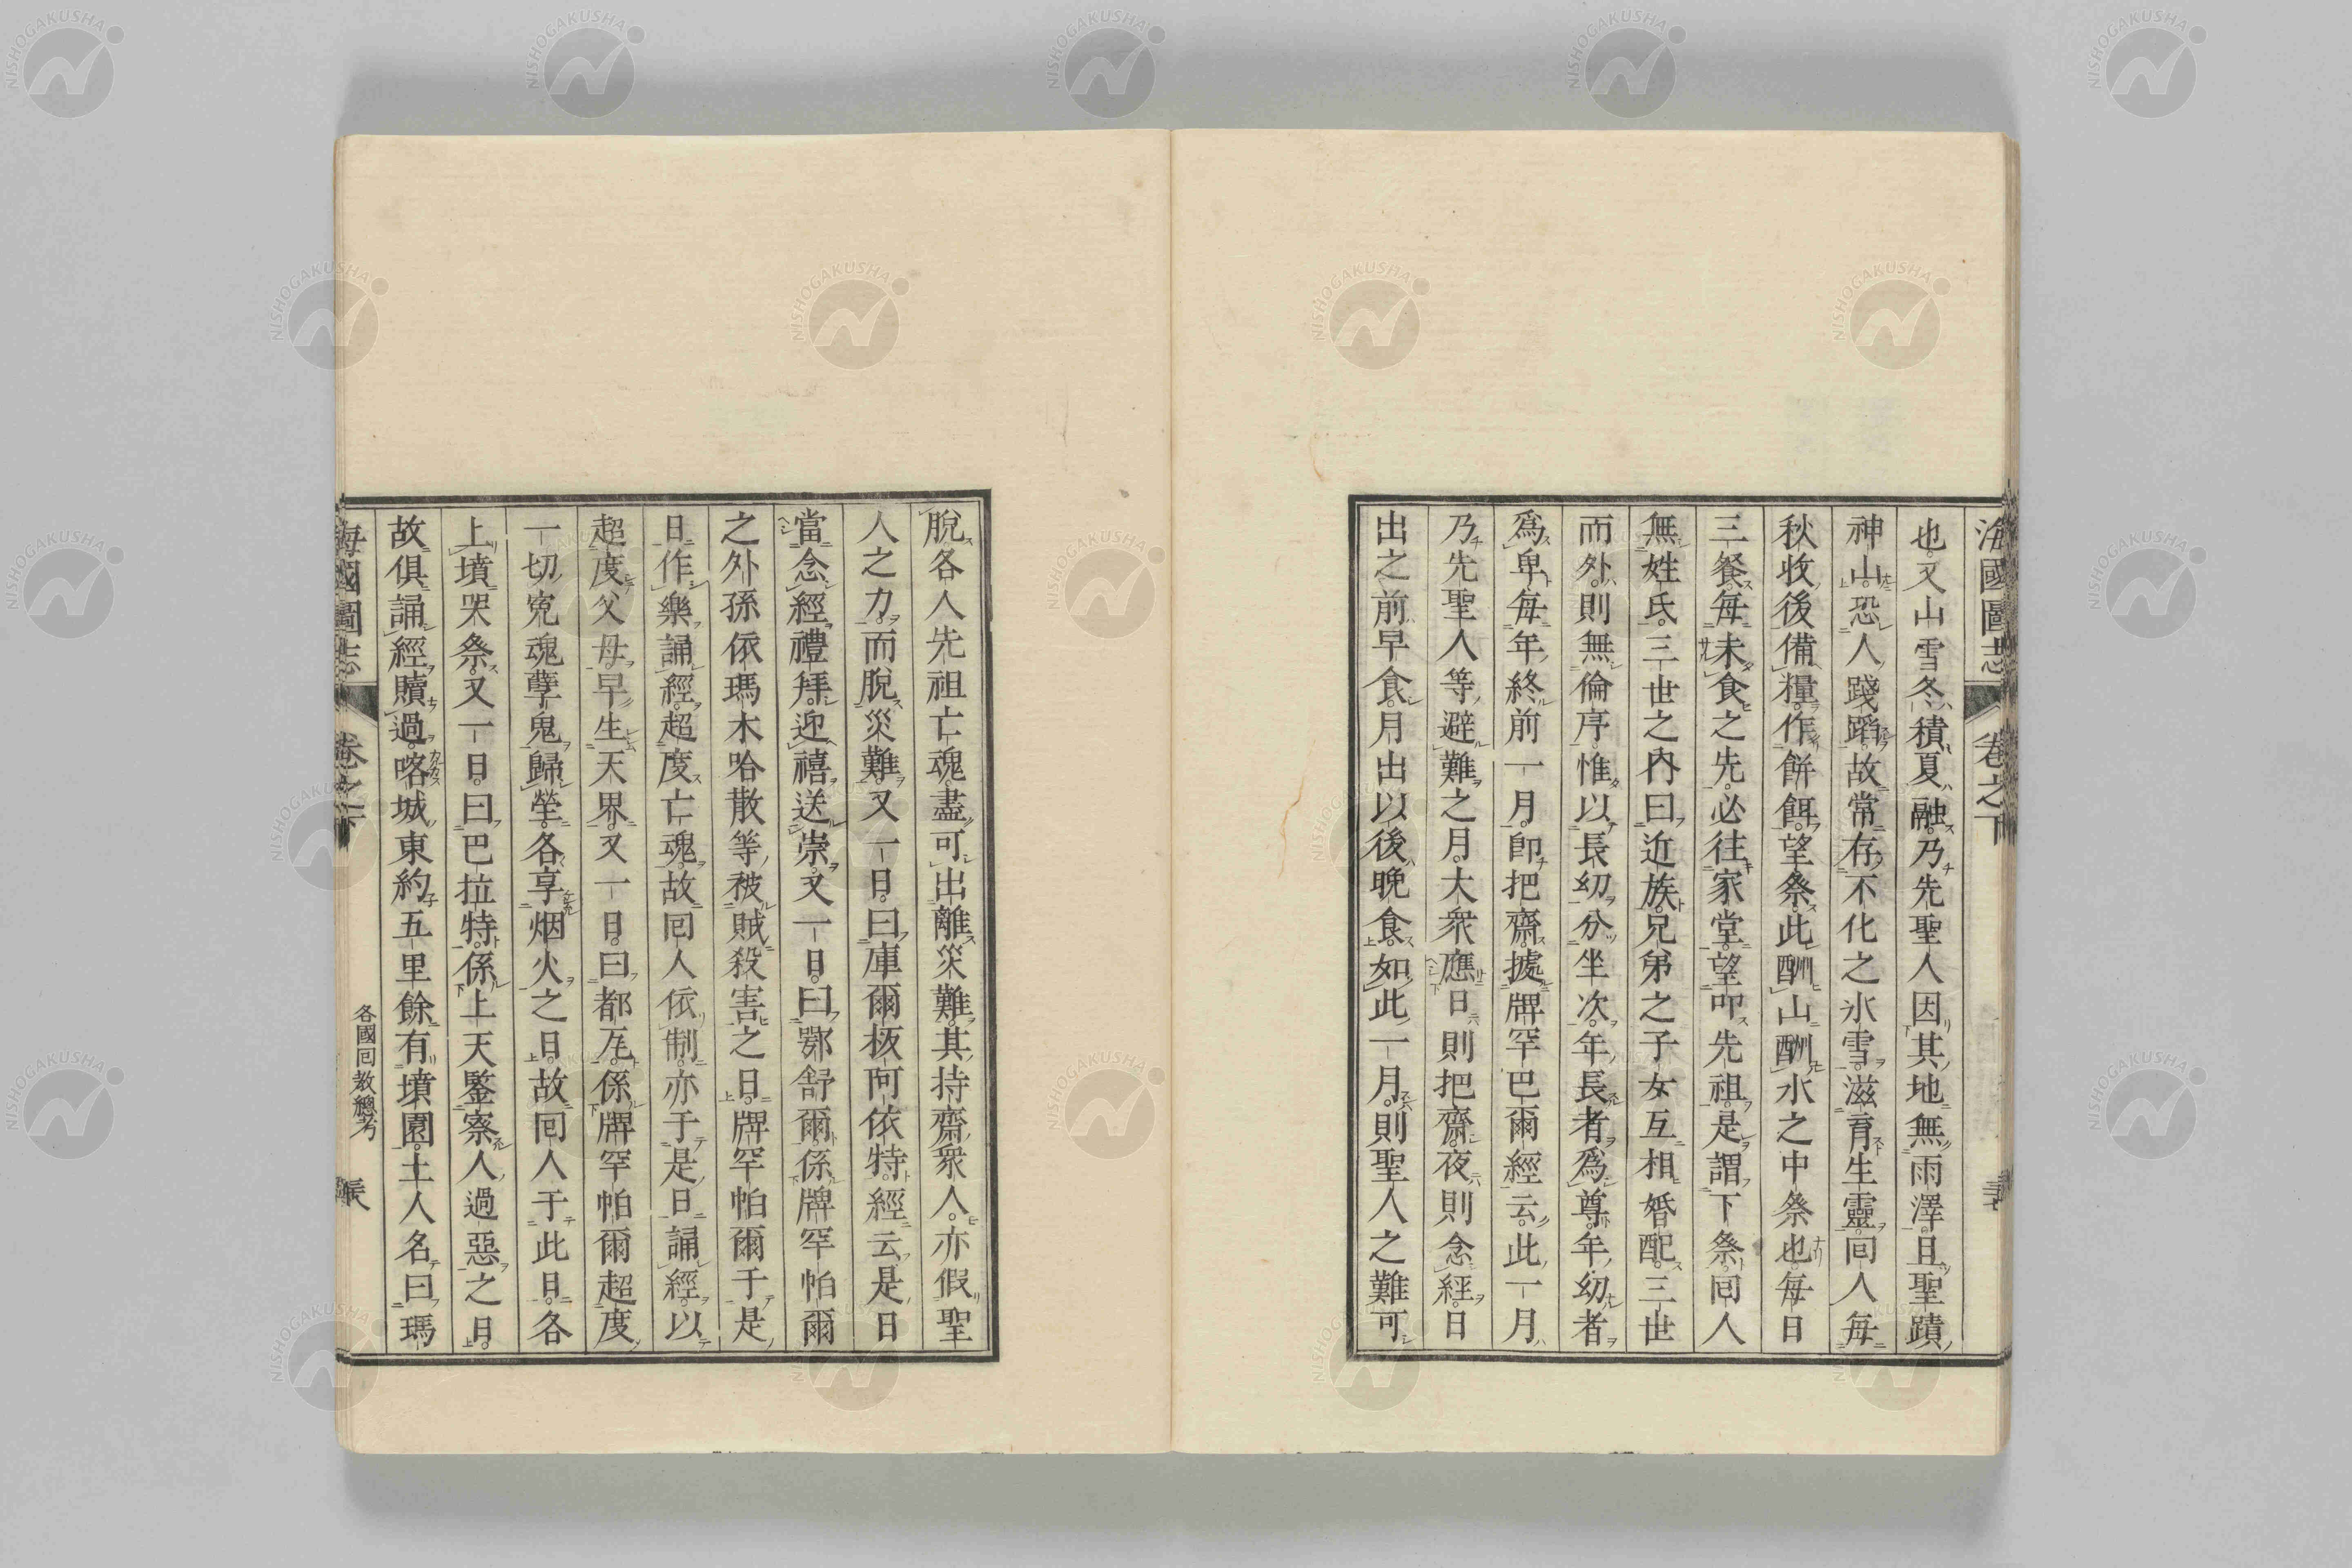 海國圖志 卷之下
也。又山雪冬積夏融。乃先聖人因其地無雨澤。且聖蹟
神山。恐人踐蹈。故常存不化之氷雪。滋育生靈。囘人每
秋收後備糧。作餠餌。望祭。此酬山酬水之中祭也。每日
三餐。每未食之先。必往家堂。望叩先祖。是謂下祭。囘人
無姓氏。三世之內曰近族。兄弟之子女互相婚配。三世
而外。則無倫序。惟以長幼分坐次。年長者爲尊。年幼者
爲卑。每年終前一月。卽把齋。據牌罕巴爾經云。此一月
乃先聖人等避難之月。大衆應日則把齋。夜則念經。日
出之前早食。月出以後晚食。如此一月。則聖人之難可
脫。各人先祖亡魂盡可出離災難。其持齋衆人。亦假聖
人之力。而脫災難。又一日。曰庫爾板阿依特。經云。是日
當念經禮拜。迎禧送崇。又一日。曰鄂舒爾。係牌罕帕爾
之外孫依瑪木哈散等被賊殺害之日。牌罕帕爾于是
日作樂誦經。超度亡魂。故囘人依制。亦于是日誦經。以
超度父母早生天界。又一日。曰都瓦。係牌罕帕爾超度
一切寃魂孽鬼歸塋。各享烟火之日。故囘人于此日。各
上墳哭祭。又一日。曰巴拉特。係上天鑒察人過惡之日。
故俱誦經贖過。喀城東約五里餘。有墳園。土人名曰瑪
海國圖志 卷之下 各國囘敎總考
NISHOGAKUSHA